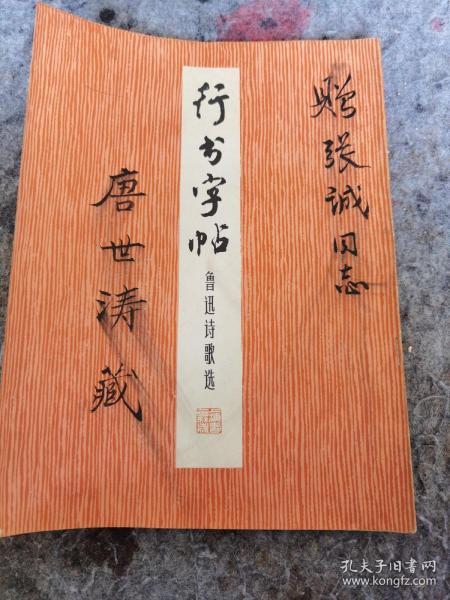 赠张诚同志
行书字帖
鲁迅诗歌选
唐世涛藏
孔夫子旧书网
www.kongfz.com